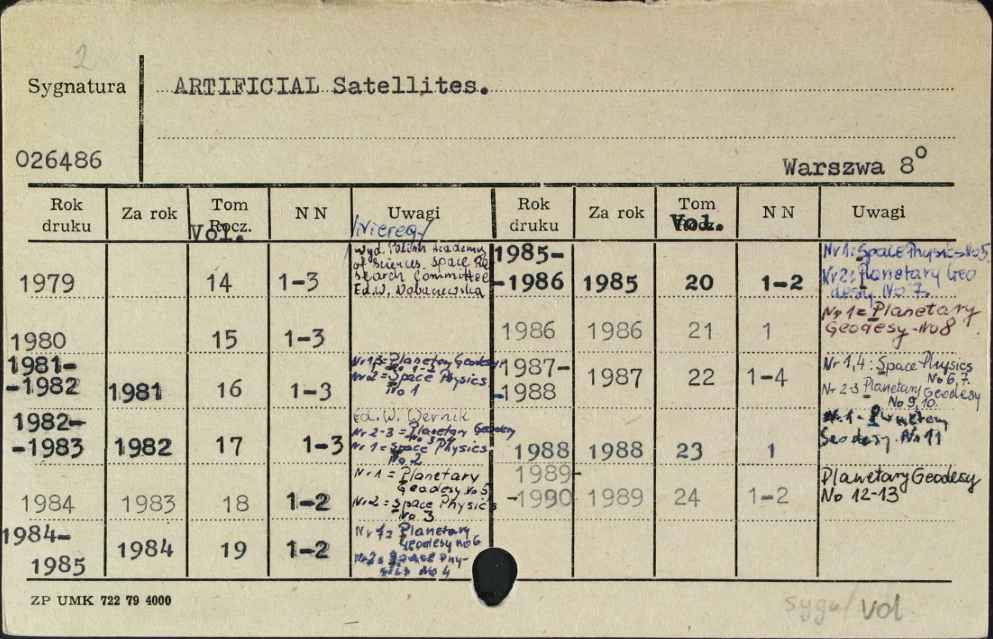 2
Sygnatura ARTIFICIAL Satellites.
026486
Warszwa 8⁰
Rok druku Za rok Tom Rocz. Vol. NN Uwagi Rok druku Za rok Tom Rocz. Vol. NN Uwagi
1979 14 1-3
Wyd. Polish Academy
of Sciences. Space Re
search Committee
Ed. W.
1980 15 1-3
1981-
-1982 1981 16 1-3
Nr 1,3 = Planetary Geodesy
No 1-2
Nr 2 = Space Physics
No 1
1982-
-1983 1982 17 1-3
Ed. W. Wernik
Nr 2-3 = Planetary Geodesy
No 3,4
Nr 1 = Space Physics
No 2
1984 1983 18 1-2
Nr 1 = Planetary
Geodesy No 5
Nr 2 = Space Physics
No 3
1984-
1985 1984 19 1-2
Nr 1 = Planetary
Geodesy No 6
Nr 2 = Space Phy-
sics No 4
1985-
-1986 1985 20 1-2
Nr 1: Space Physics No 5
Nr 2: Planetary Geo
desy No 7
1986 1986 21 1
Nr 1 = Planetary
Geodesy No 8
1987-
-1988 1987 22 1-4
Nr 1,4: Space Physics
No 6,7.
Nr 2-3 Planetary Geodesy
No 9,10.
1988 1988 23 1
Nr 1 - Planetary
Geodesy. No 11
1989-
-1990 1989 24 1-2
Planetary Geodesy
No 12-13
ZP UMK 722 79 4000
sygn/vol